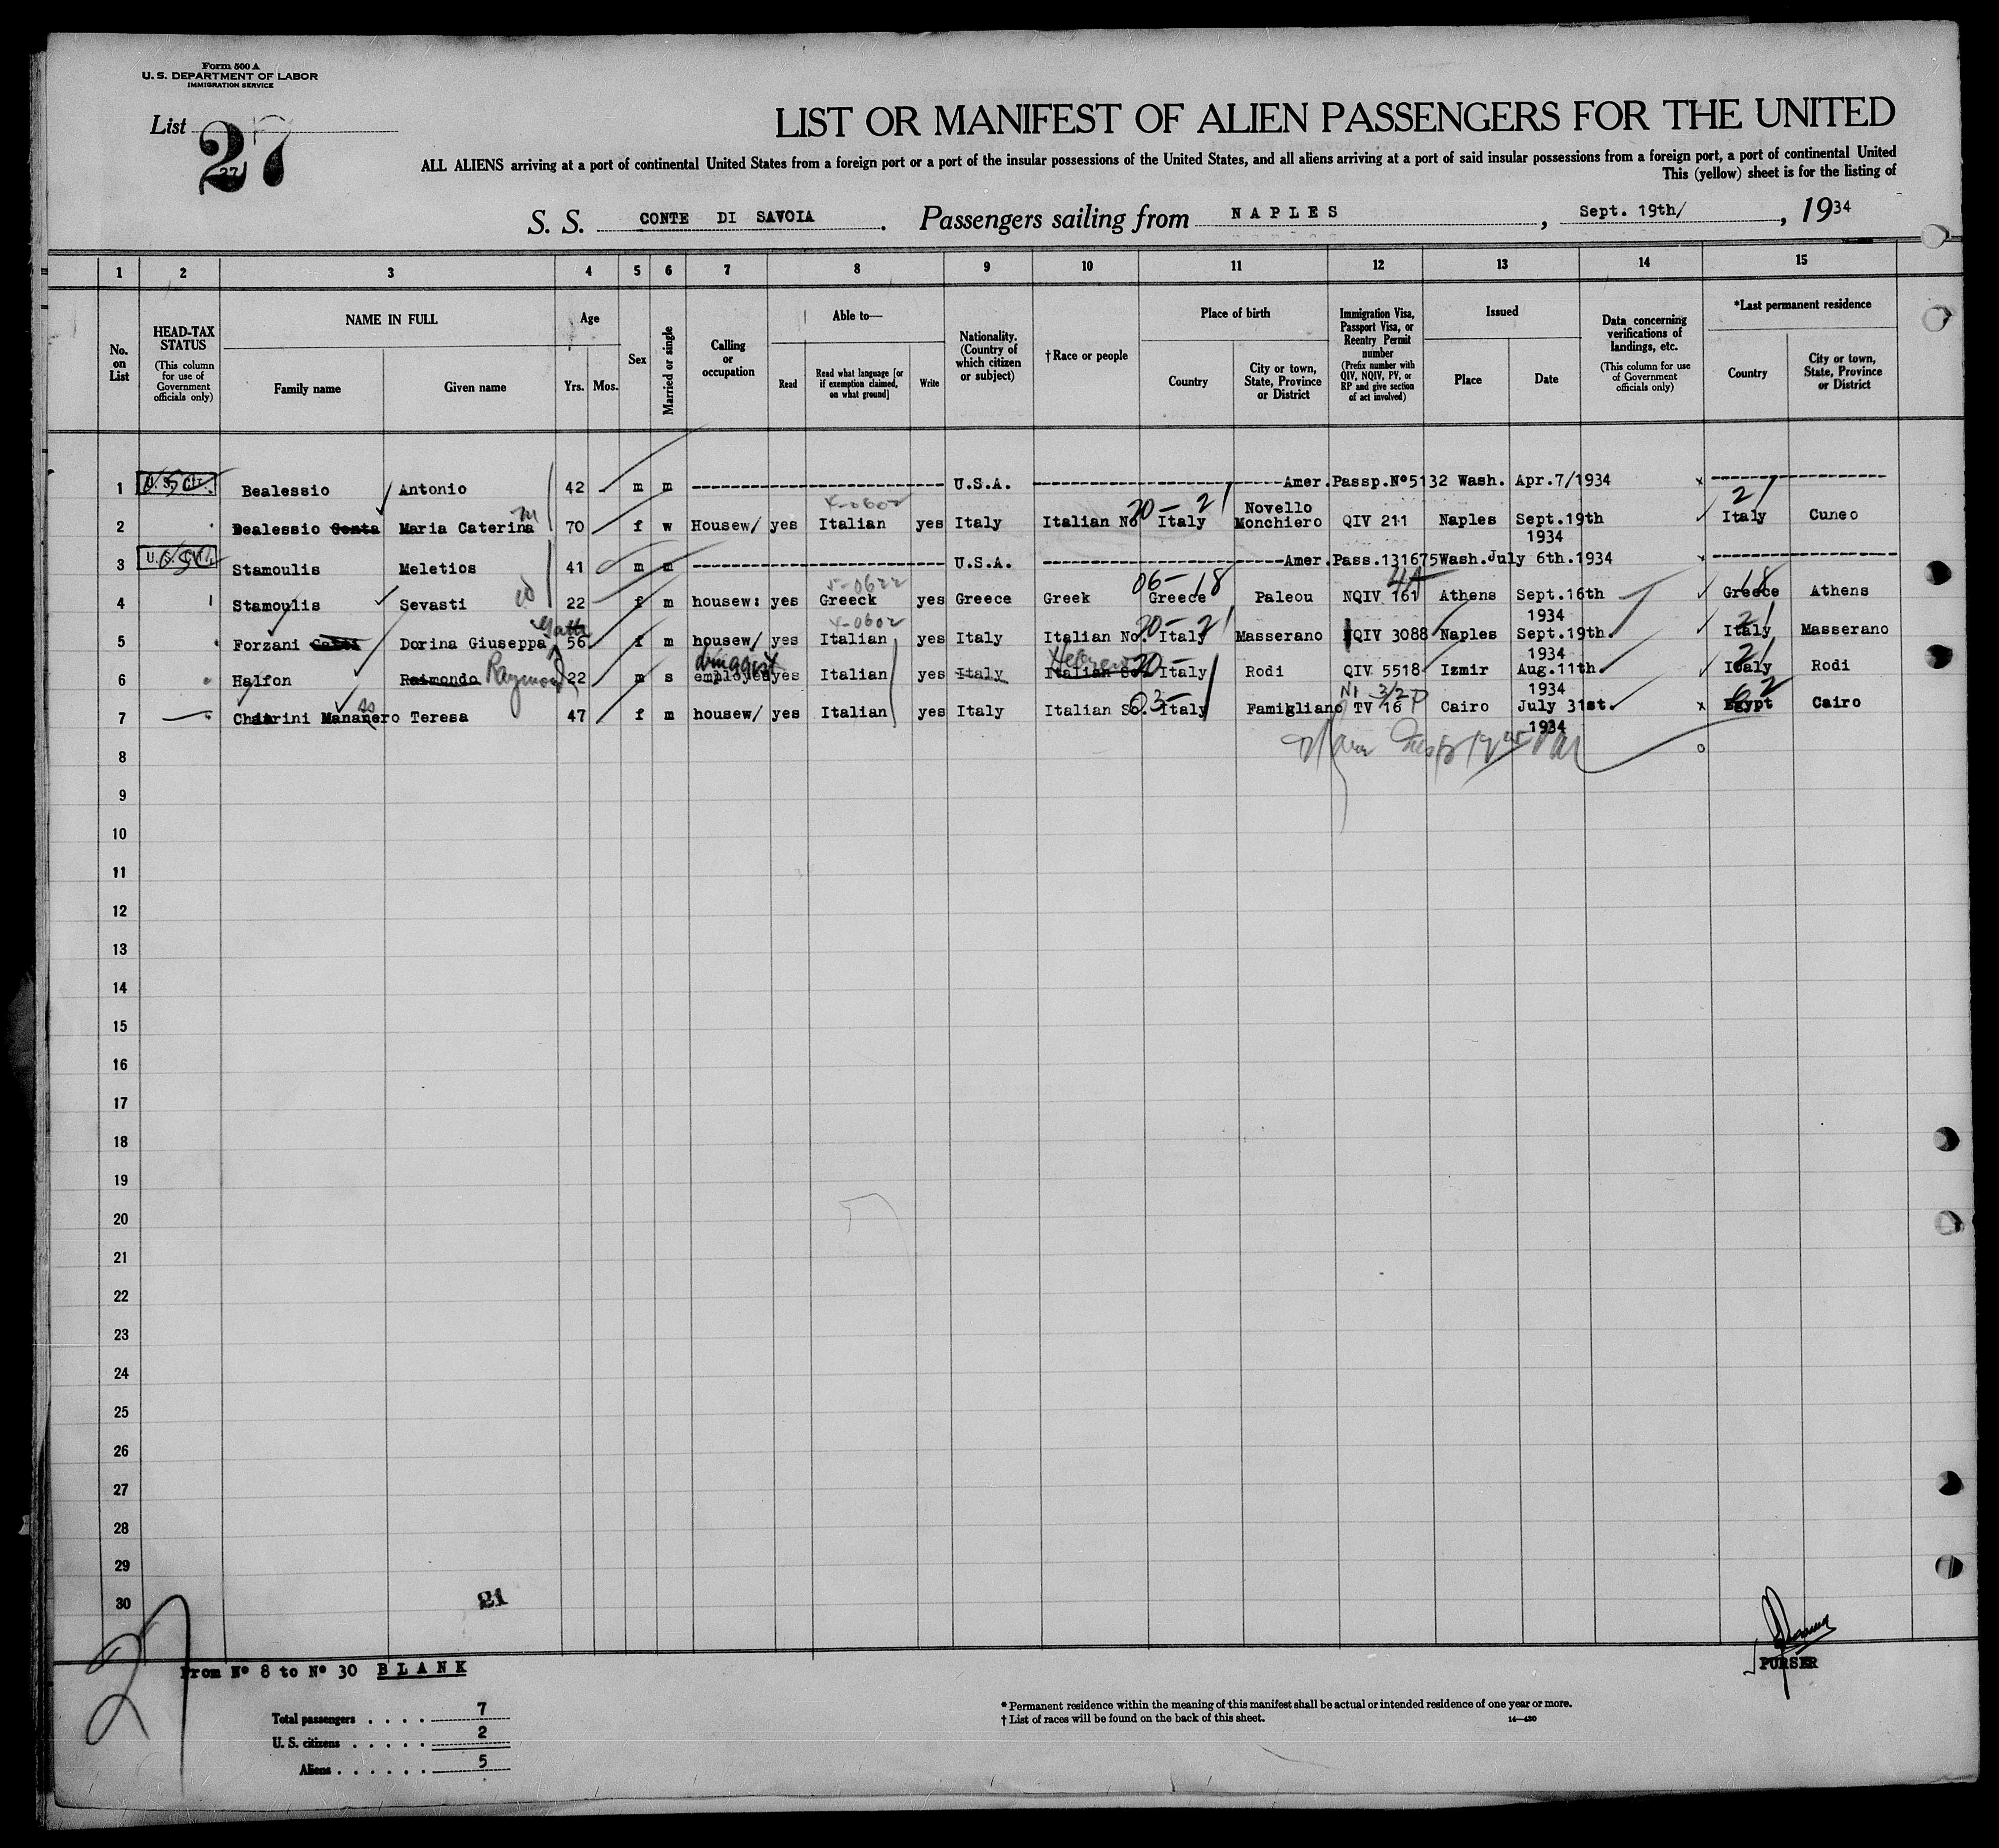 Form 500 A
U. S. DEPARTMENT OF LABOR
IMMIGRATION SERVICE
List 27
27
LIST OR MANIFEST OF ALIEN PASSENGERS FOR THE UNITED
ALL ALIENS arriving at a port of continental United States from a foreign port or a port of the insular possessions of the United States, and all aliens arriving at a port of said insular possessions from a foreign port, a port of continental United
This (yellow) sheet is for the listing of
S. S. CONTE DI SAVOIA. Passengers sailing from NAPLES, Sept. 19th/, 1934
1 2 3 4 5 6 7 8 9 10 11 12 13 14 15
No. on List
HEAD-TAX STATUS (This column for use of Government officials only)
NAME IN FULL Family name Given name
Age Yrs. Mos.
Sex
Married or single
Calling or occupation
Able to— Read Read what language [or if exemption claimed, on what ground] Write
Nationality. (Country of which citizen or subject)
† Race or people
Place of birth Country City or town, State, Province or District
Immigration Visa, Passport Visa, or Reentry Permit number (Prefix number with QIV, NQIV, PV, or RP and give section of act involved)
Issued Place Date
Data concerning verifications of landings, etc. (This column for use of Government officials only)
*Last permanent residence Country City or town, State, Province or District
1 U.S. Cit. Bealessio Antonio 42 m m U.S.A. Amer.Passp.Nº5132 Wash. Apr.7/1934 x
4-0602 20- 21 21
2 Bealessio Conta Maria Caterina m 70 f w Housew/ yes Italian yes Italy Italian No. Italy Novello Monchiero QIV 211 Naples Sept.19th 1934 Italy Cuneo
3 U.S. Cit. Stamoulis Meletios 41 m m U.S.A. Amer.Pass.131675 Wash. July 6th.1934 x
5-0622 06- 18 4A 18
4 Stamoulis Sevasti 22 f m housew: yes Greeck yes Greece Greek Greece Paleou NQIV 161 Athens Sept.16th 1934 Greece Athens
4-0602 20- 21 21
5 Forzani Dorina Giuseppa 56 f m housew/ yes Italian yes Italy Italian No. Italy Masserano QIV 3088 Naples Sept.19th. 1934 Italy Masserano
druggist Hebrew 20- 21
6 Halfon Raimondo Raymond 22 m s employee yes Italian yes Italy Italian So. Italy Rodi QIV 5518 Izmir Aug.11th. 1934 Italy Rodi
03- 3/2 62
7 Chiarini Mananero Teresa 47 f m housew/ yes Italian yes Italy Italian So. Italy Famigliano TV 16 Cairo July 31st. 1934 x Egypt Cairo
8
9
10
11
12
13
14
15
16
17
18
19
20
21
22
23
24
25
26
27
28
29
30
21
27
From Nº 8 to Nº 30 BLANK
PURSER
Total passengers . . . . 7
U. S. citizens . . . . . 2
Aliens . . . . . . 5
* Permanent residence within the meaning of this manifest shall be actual or intended residence of one year or more.
† List of races will be found on the back of this sheet. 14—430